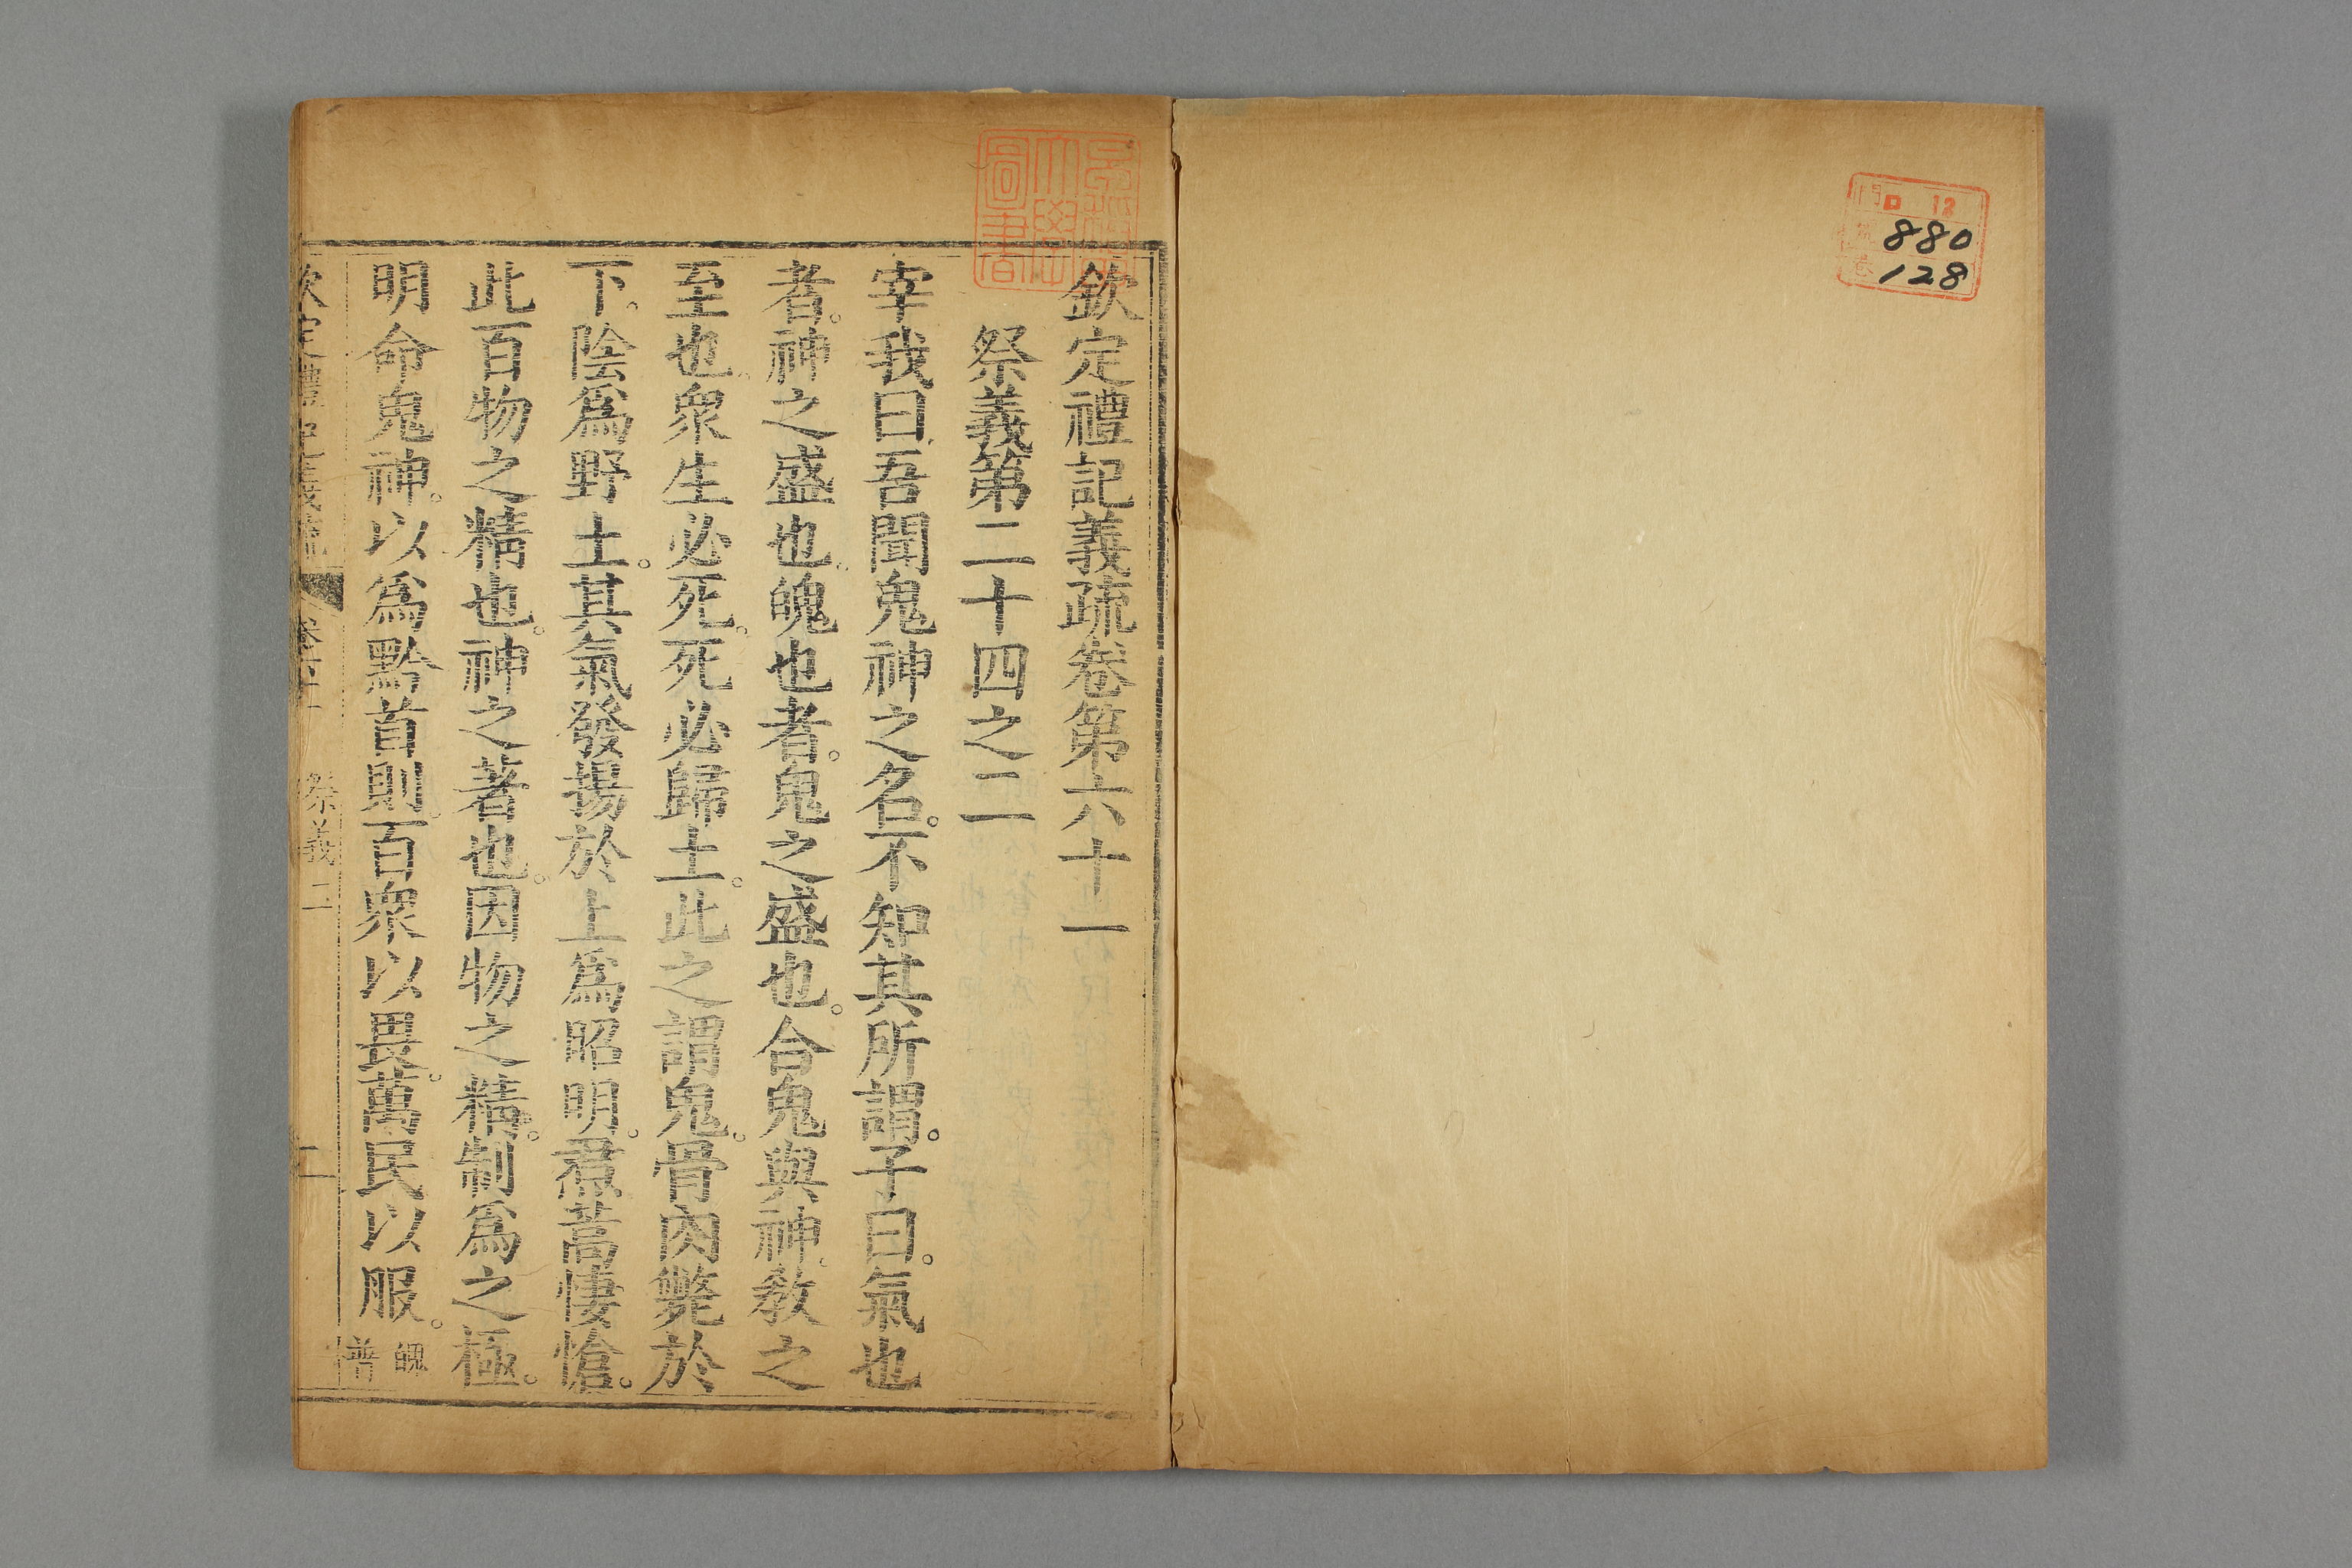 ロ 12
880
128
欽定禮記義疏卷第六十一
祭義第二十四之二
宰我曰吾聞鬼神之名。不知其所謂。子曰。氣也
者。神之盛也。魄也者。鬼之盛也。合鬼與神。教之
至也。衆生必死。死必歸土。此之謂鬼。骨肉斃於
下。陰爲野土。其氣發揚於上爲昭明。焄蒿悽愴。
此百物之精也。神之著也。因物之精。制爲之極。
明命鬼神。以爲黔首則。百衆以畏。萬民以服。魄
普
祭義二
一